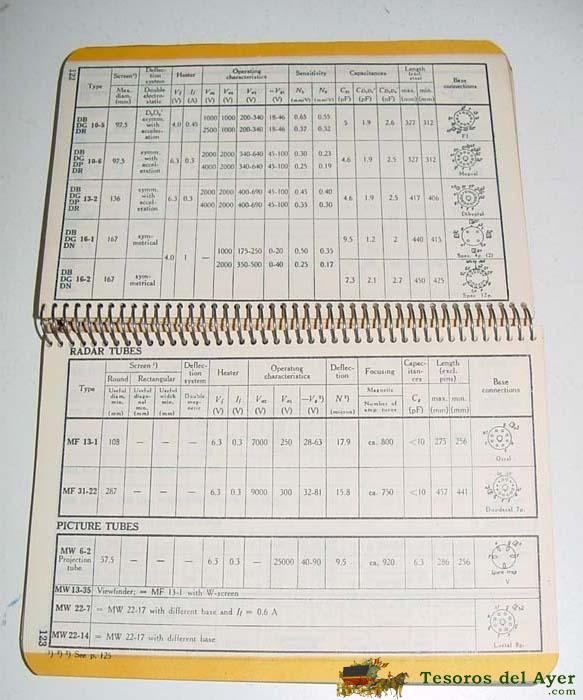 122
Type Screen¹) Deflection system Heater Operating characteristics Sensitivity Capacitances Length (excl. Base connections
Max. diam. (mm) Double electrostatic
DB DG 10-5 DR 97.5 4.0 0.45 1000 1000 200-340 18-46 0.65 0.55 5 1.9 2.6 327 312
2500 1000 200-340 18-46 0.37 0.32
DB DG 10-6 DP DR 97.5 symm. with acceleration 6.3 0.3 2000 2000 340-640 45-100 0.30 0.23 4.6 1.9 2.5 327 312
4000 2000 340-640 45-100 0.25 0.19
DB DG 13-2 DP DR 136 symm. with acceleration 6.3 0.3 2000 2000 400-690 45-100 0.45 0.40 4.6 1.9 2.5 417 406
4000 2000 400-690 45-100 0.35 0.30
DB DG 16-1 DN 167 symmetrical 4.0 1 — 1000 175-250 0-20 0.50 0.35 9.5 1.2 2 440 415
2000 350-500 0-40 0.25 0.17
DB DG 16-2 DN 167 symmetrical 7.3 2.1 2.7 450 425
RADAR TUBES
Type Screen ¹) Deflection system Heater Operating characteristics Deflection Focusing Capacitances Length (excl. pins) Base connections
Round Rectangular
Useful diam. min. (mm) Useful diagonal min. (mm) Useful width min. (mm) Double magnetic N ⁴) (micron) Magnetic Number of amp. turns max. (mm) min. (mm)
MF 13-1 108 — — 6.3 0.3 7000 250 28-63 17.9 ca. 800 <10 275 256 Octal
MF 31-22 287 — — 6.3 0.3 9000 300 32-81 15.8 ca. 750 <10 457 441 Duodecal 7p.
PICTURE TUBES
MW 6-2 Projection tube 57.5 — — 6.3 0.3 — 25000 40-90 9.5 ca. 920 6.3 286 256
MW 13-35 Viewfinder; = MF 13-1 with W-screen
MW 22-7 = MW 22-17 with different base and If = 0.6 A
MW 22-14 = MW 22-17 with different base
123
¹) ²) ³) See p. 125
Tesoros del Ayer
.com